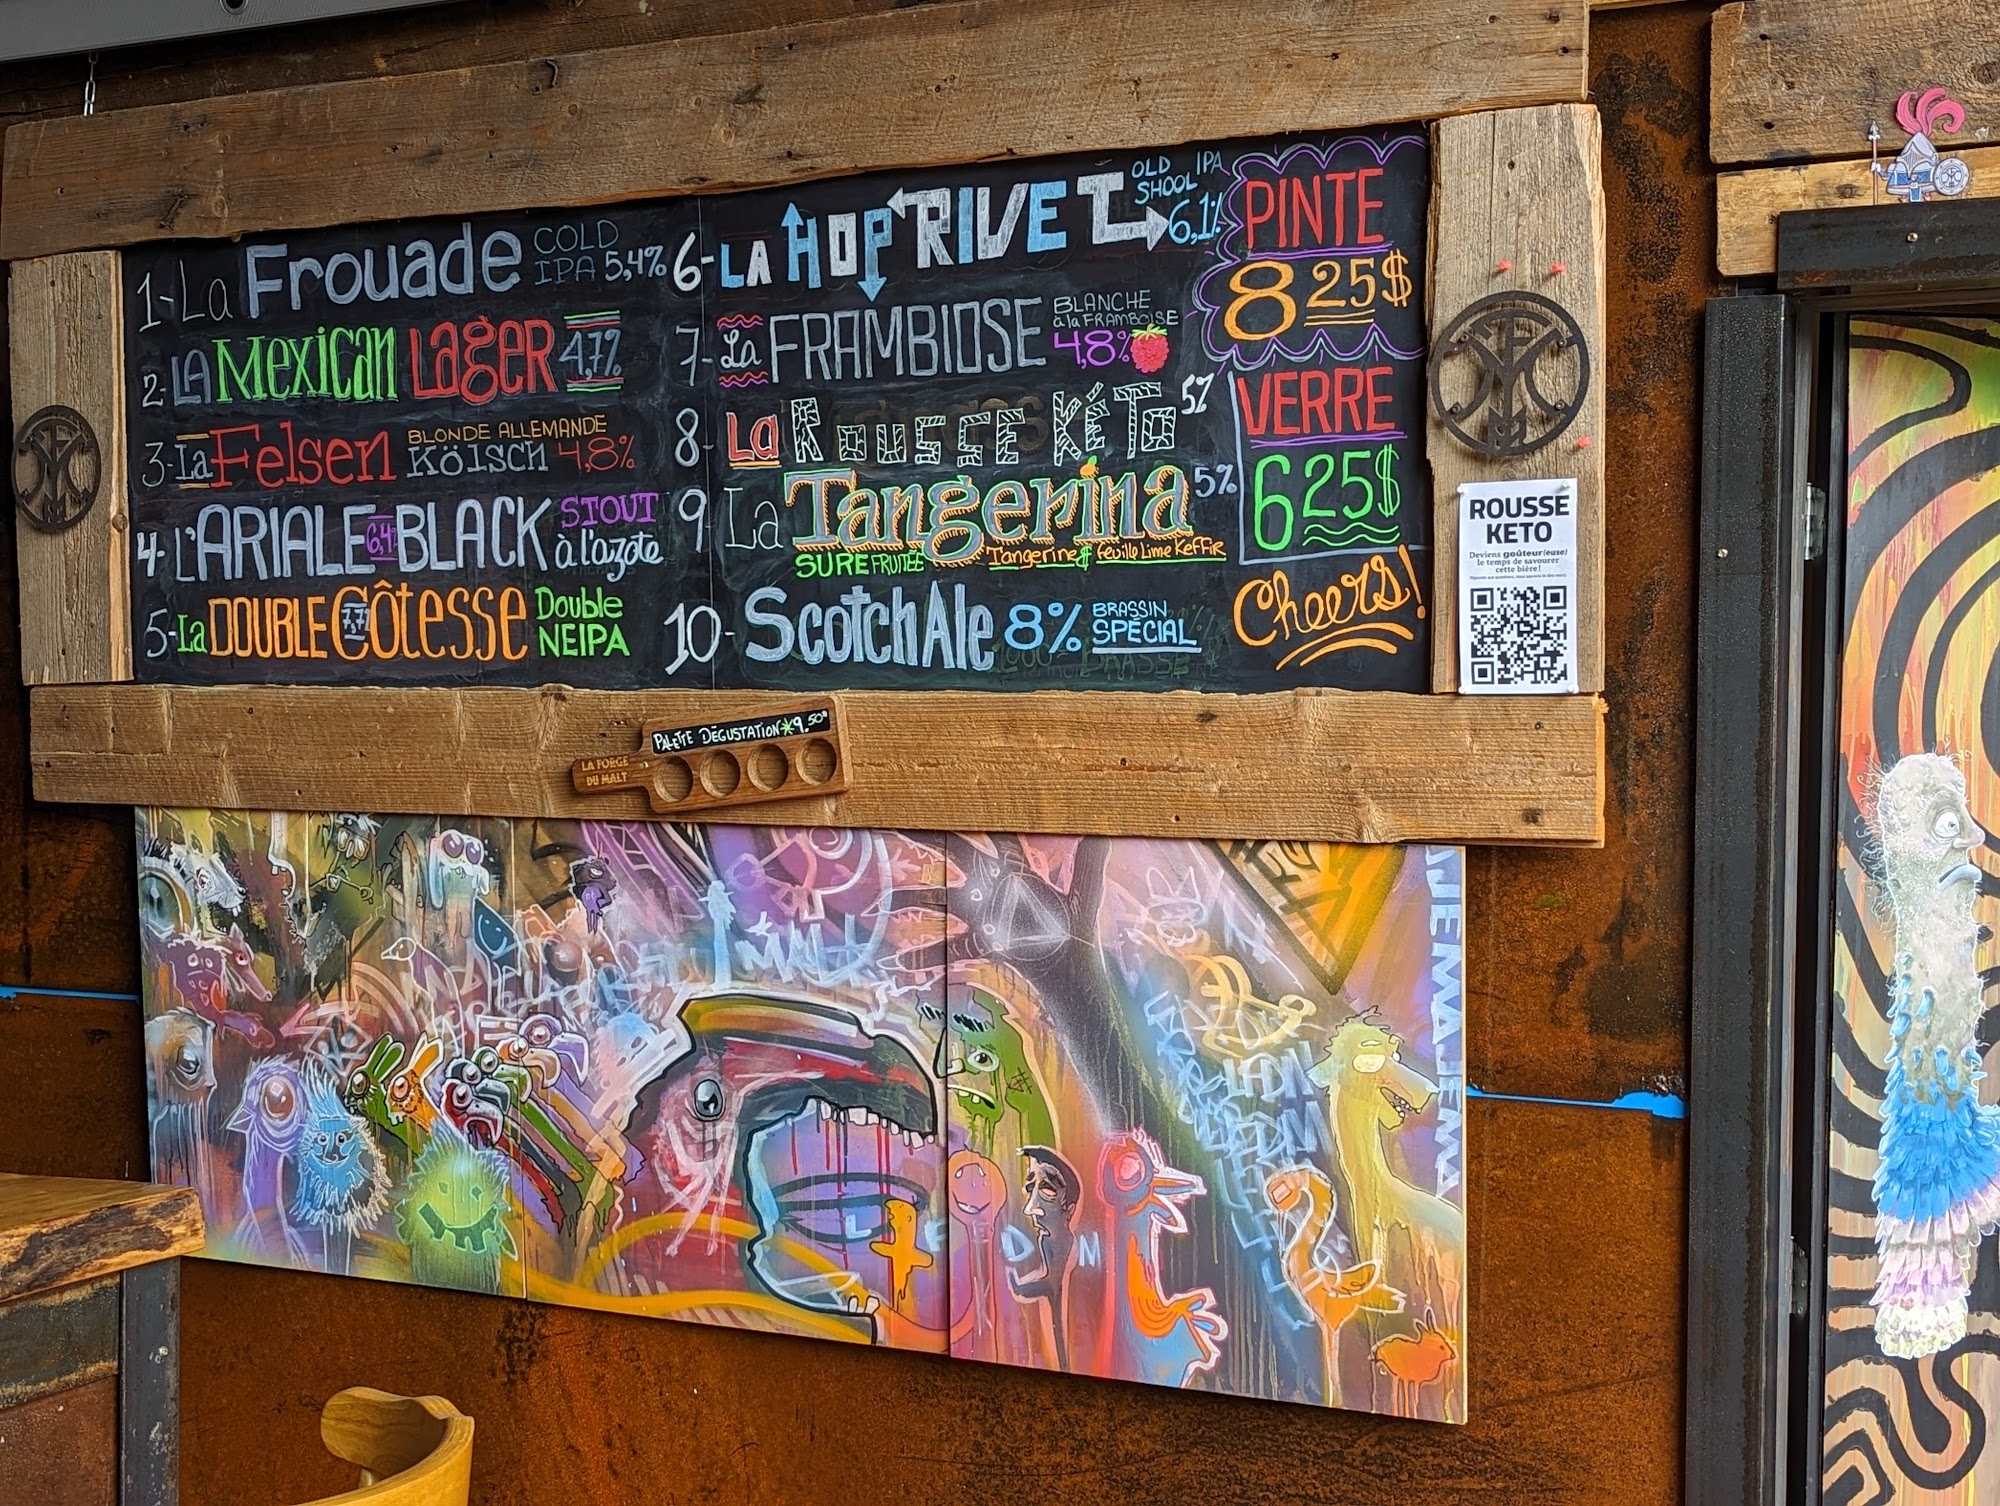 1-La Frouade COLD IPA 5,4%
2-LA MEXICAN LAGER 4,7%
3-La Felsen BLONDE ALLEMANDE KÖLSCH 4,8%
4-L'ARIALE BLACK 6,4% STOUT à l'azote
5-La DOUBLE CÔTESSE 7,7% Double NEIPA
6-LA HOP RIVET OLD SHOOL IPA 6,1%
7-La FRAMBIOSE BLANCHE à la FRAMBOISE 4,8%
8-La ROUSSE KÉTO 5%
9-La Tangerina 5%
SURE FRUITÉE Tangerine & feuille Lime Keffir
10-Scotch Ale 8% BRASSIN SPÉCIAL
PINTE
8 25$
VERRE
6 25$
Cheers!
ROUSSE
KETO
Deviens goûteur(euse)
le temps de savourer
cette bière!
PALETTE DÉGUSTATION * 9.50$
LA FORGE
DU MALT
L F D M
JEMAJEMA